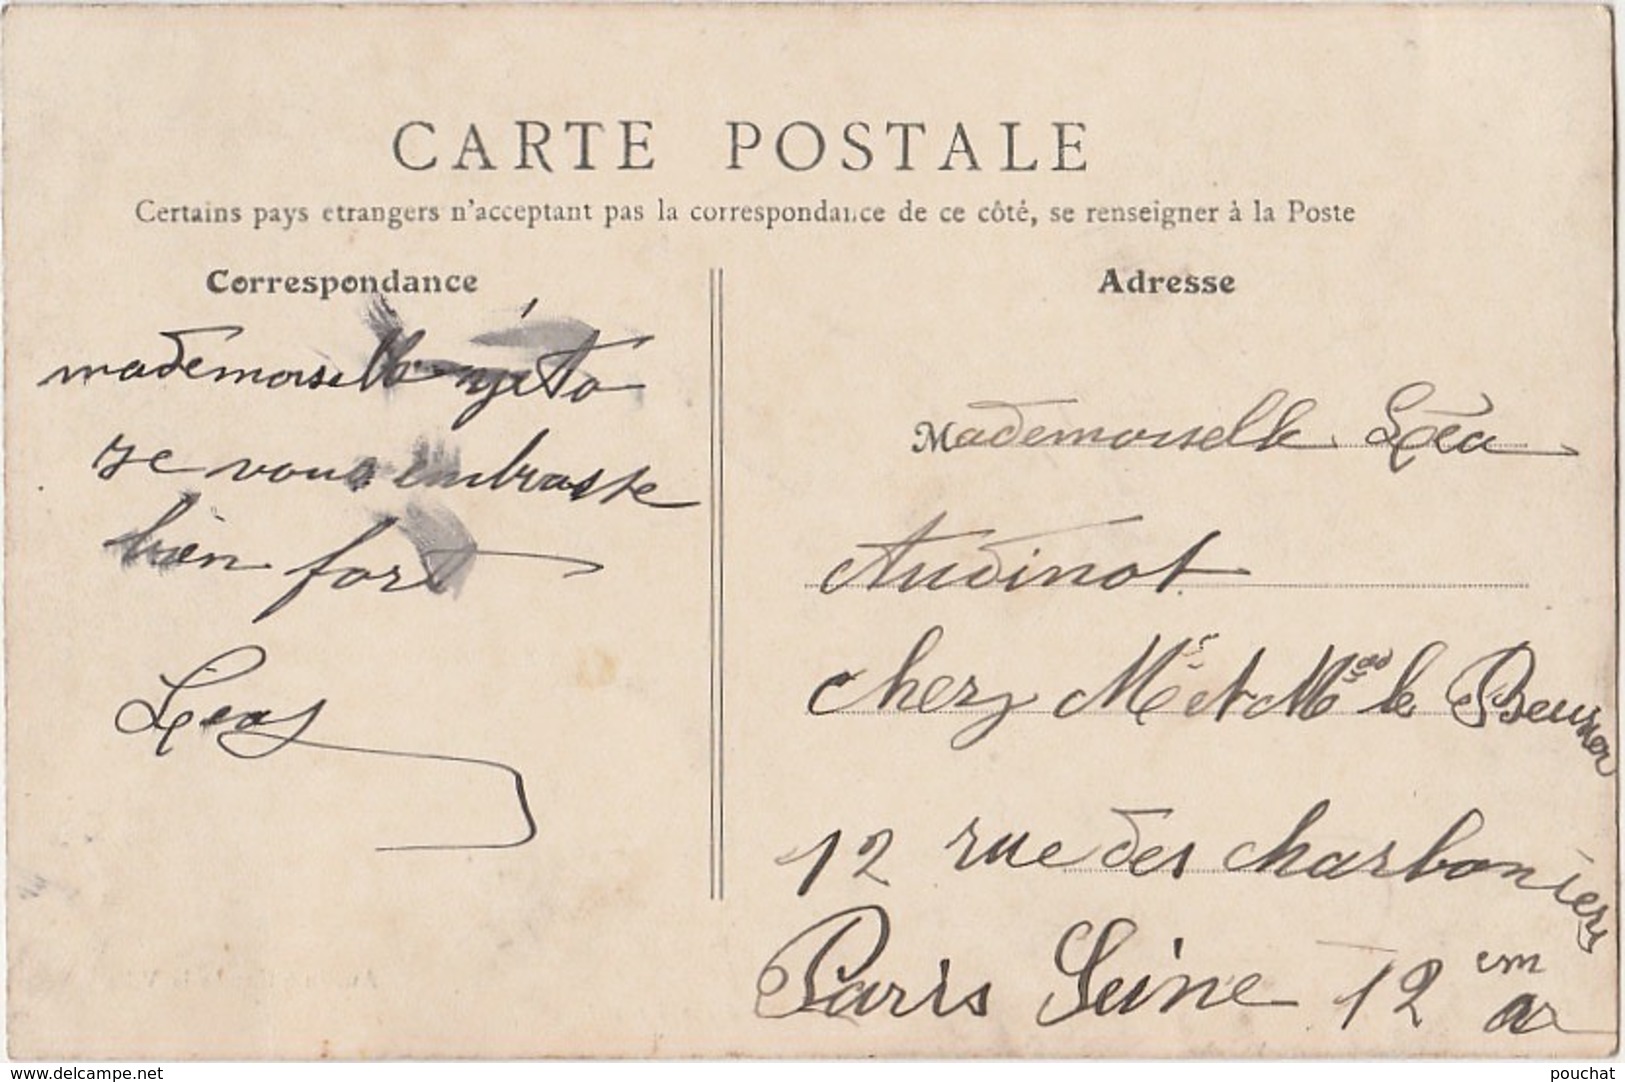 CARTE POSTALE
Certains pays etrangers n'acceptant pas la correspondance de ce côté, se renseigner à la Poste
Correspondance
mademoiselle
je vous embrasse
bien fort
Leas
Adresse
Mademoiselle Léa
Audinot
cherz Mr et Mme le
12 rue des charboniers
Paris Seine 12 em
ar
www.delcampe.net
pouchat